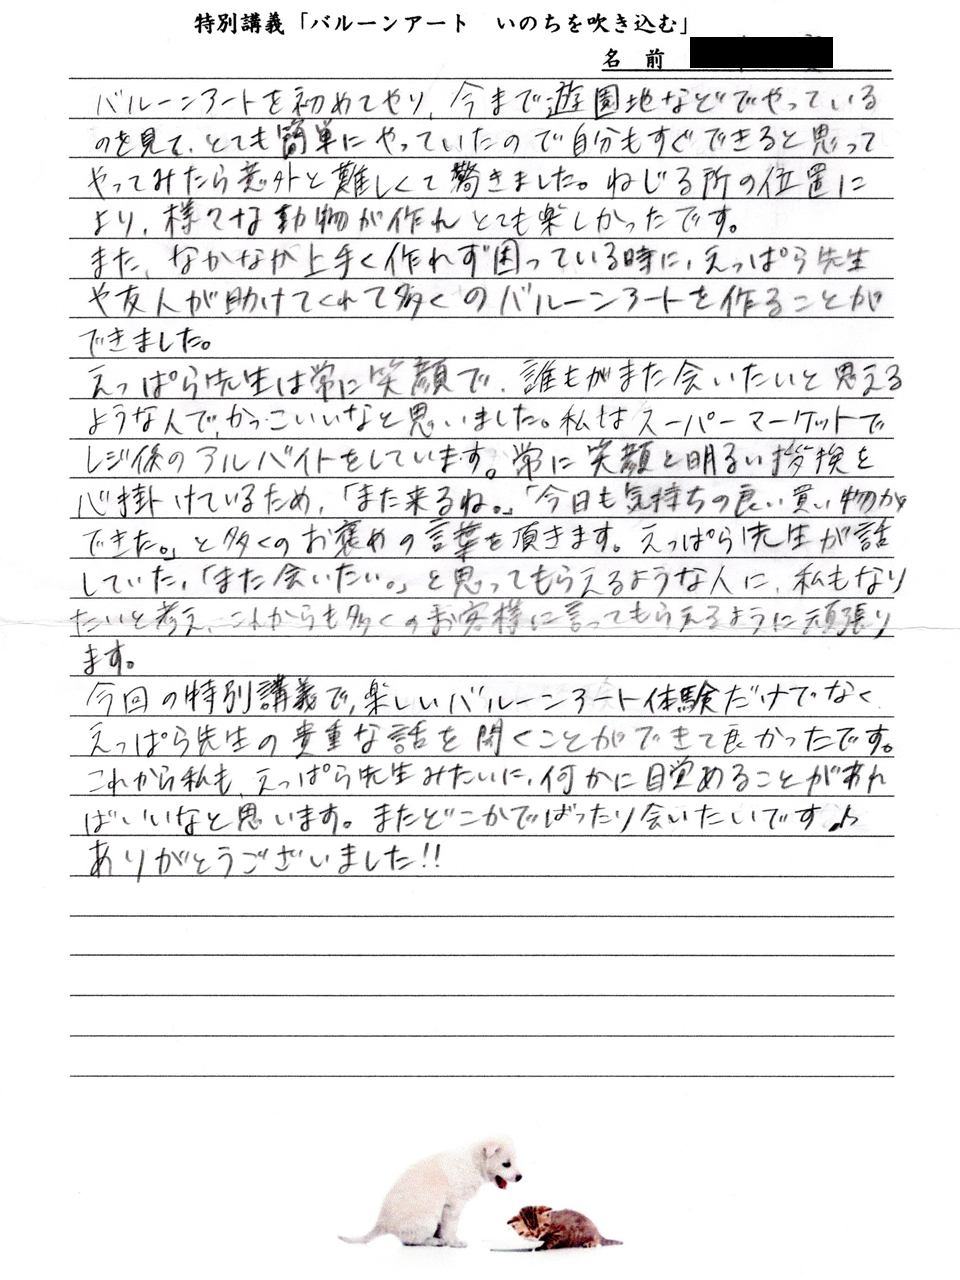 特別講義「バルーンアート　いのちを吹き込む」
名　前
バルーンアートを初めてやり、今まで遊園地などでやっている
のを見て、とても簡単にやっていたので自分もすぐできると思って
やってみたら意外と難しくて驚きました。ねじる所の位置に
より、様々な動物が作れとても楽しかったです。
また、なかなか上手く作れず困っている時に、えっぱら先生
や友人が助けてくれて多くのバルーンアートを作ることが
できました。
えっぱら先生は常に笑顔で、誰もがまた会いたいと思える
ような人で、かっこいいなと思いました。私はスーパーマーケットで
レジ係のアルバイトをしています。常に笑顔と明るい挨拶を
心掛けているため、「また来るね。」「今日も気持ちの良い買い物が
できた。」と多くのお褒めの言葉を頂きます。えっぱら先生が話
していた、「また会いたい。」と思ってもらえるような人に、私もなり
たいと考え、これからも多くのお客様に言ってもらえるように頑張り
ます。
今回の特別講義で、楽しいバルーンアート体験だけでなく
えっぱら先生の貴重な話を聞くことができて良かったです。
これから私も、えっぱら先生みたいに、何かに目覚めることがあれ
ばいいなと思います。またどこかでばったり会いたいです♪
ありがとうございました!!